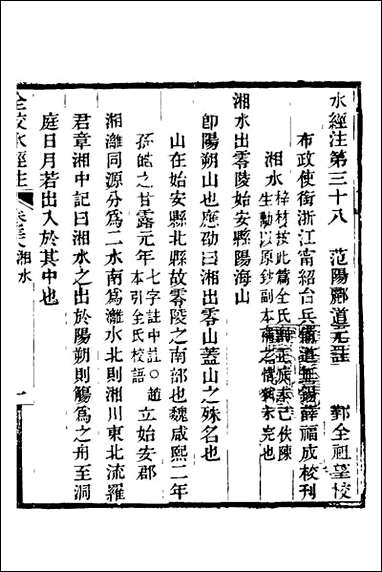 水經注第三十八 范陽酈道元注 鄞全祖望校
布政使銜浙江甯紹台兵備道無錫薛福成校刊
湘水 梓材按此篇全氏
生勱以原鈔副本
湘水出零陵始安縣陽海山
卽陽朔山也應劭曰湘出零山蓋山之殊名也
山在始安縣北縣故零陵之南部也魏咸熙二年
孫皓之甘露元年 七字註中註○趙本引全氏校語 立始安郡
湘灕同源分爲二水南爲灕水北則湘川東北流羅
君章湘中記曰湘水之出於陽朔則觴爲之舟至洞
庭日月若出入於其中也
全校水經注 卷三十八 湘水 一